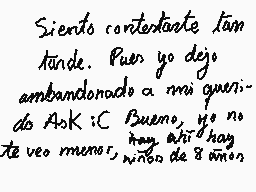 Siento contestarte tan
tarde. Pues yo dejo
ambandonado a mi queri-
do Ask :C Bueno, yo no
te veo menor, hay ahí hay
niños de 8 años